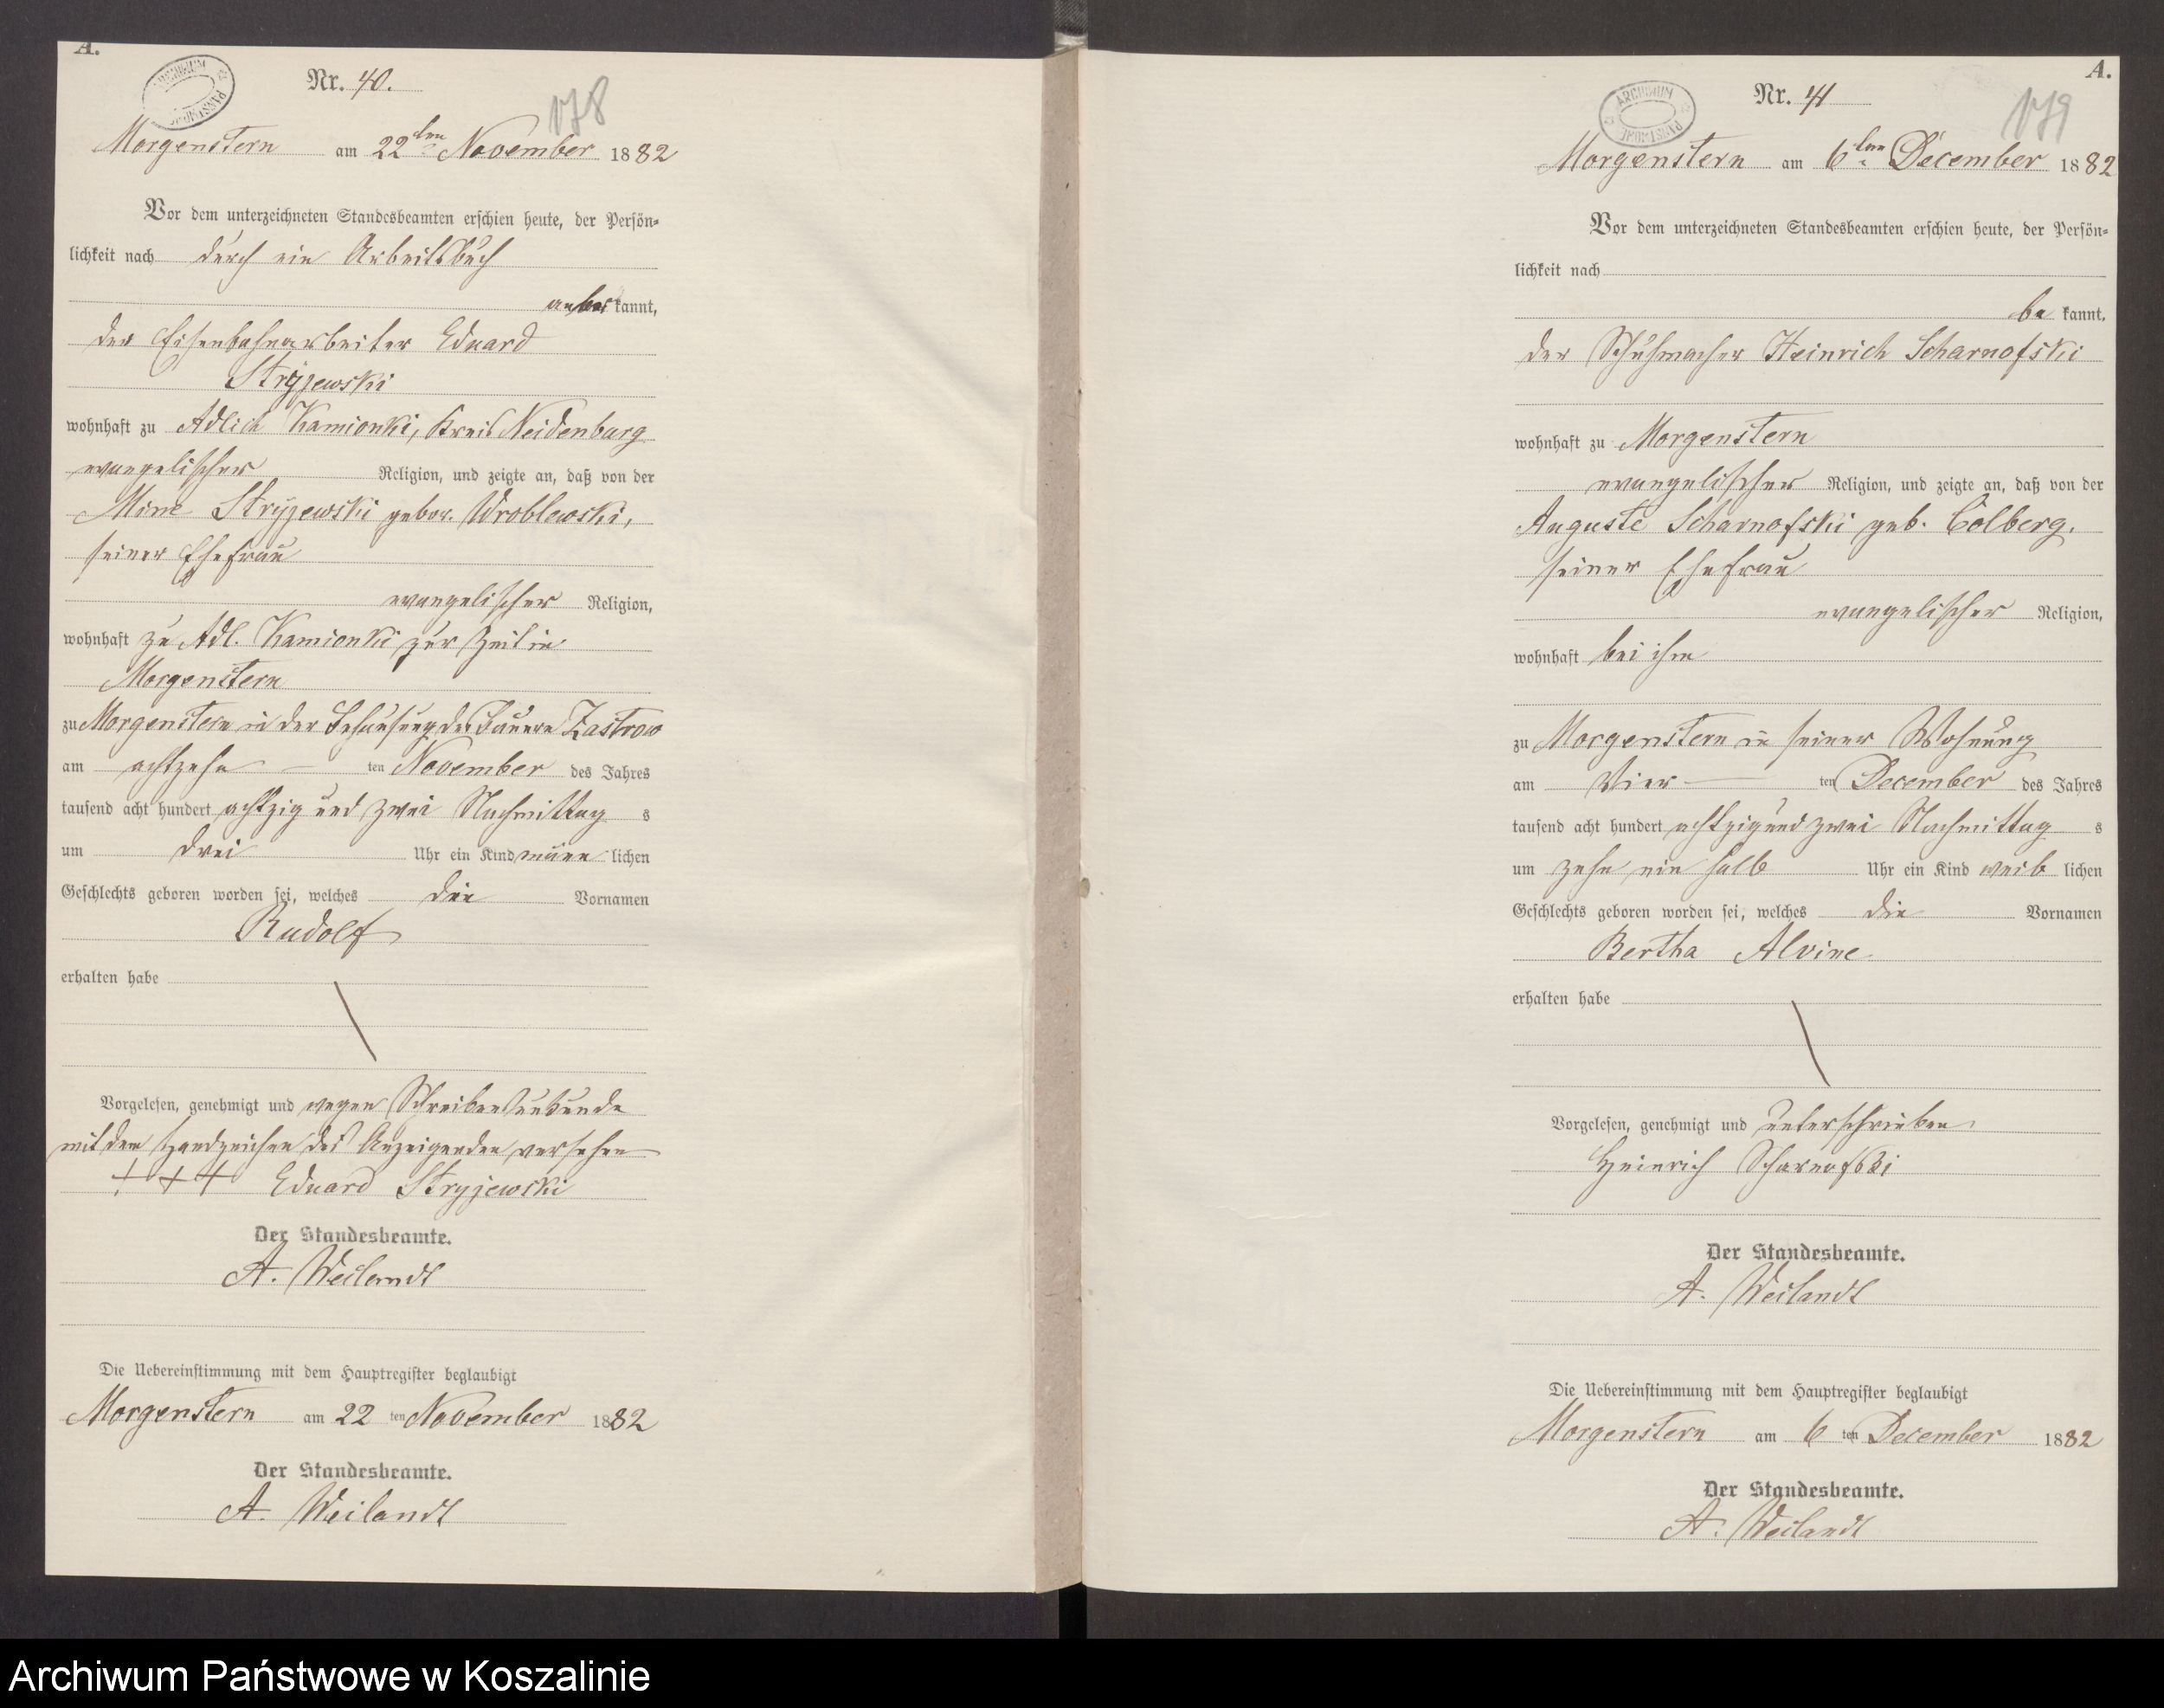 A.
ARCHIWUM PAŃSTWOWE
Nr. 40.
178
Morgenstern am 22ten November 1882
Vor dem unterzeichneten Standesbeamten erschien heute, der Persön-
lichkeit nach durch ein Arbeitsbuch
kannt,
der Eisenbahnarbeiter Eduard
Stryjewski
wohnhaft zu Adlich Kamionki, Kreis Neidenburg
evangelischer Religion, und zeigte an, daß von der
Mine Stryjewski gebor. Wroblewski,
seiner Ehefrau
evangelischer Religion,
wohnhaft zu Adl. Kamionki zur Zeit in
Morgenstern
zu Morgenstern in der Behausung des Bauern Zastrow
am achtzehn ten November des Jahres
tausend acht hundert achtzig und zwei Nachmittag s
um drei Uhr ein Kind männ lichen
Geschlechts geboren worden sei, welches die Vornamen
Rudolf
erhalten habe
Vorgelesen, genehmigt und wegen Schreibensunkunde
mit dem Handzeichen des Anzeigenden versehen
+++ Eduard Stryjewski
Der Standesbeamte.
A. Weilandt
Die Uebereinstimmung mit dem Hauptregister beglaubigt
Morgenstern am 22 ten November 1882
Der Standesbeamte.
A. Weilandt
A.
ARCHIWUM PAŃSTWOWE
Nr. 41
179
Morgenstern am 6ten December 1882
Vor dem unterzeichneten Standesbeamten erschien heute, der Persön-
lichkeit nach
be kannt,
der Schuhmacher Heinrich Scharnofski
wohnhaft zu Morgenstern
evangelischer Religion, und zeigte an, daß von der
Auguste Scharnofski geb. Colberg.
seiner Ehefrau
evangelischer Religion,
wohnhaft bei ihm
zu Morgenstern in seiner Wohnung
am Vier ten December des Jahres
tausend acht hundert achtzig und zwei Nachmittag s
um zehn ein halb Uhr ein Kind weib lichen
Geschlechts geboren worden sei, welches die Vornamen
Bertha Alvine
erhalten habe
Vorgelesen, genehmigt und unterschrieben
Heinrich Scharnofski
Der Standesbeamte.
A. Weilandt
Die Uebereinstimmung mit dem Hauptregister beglaubigt
Morgenstern am 6 ten December 1882
Der Standesbeamte.
A. Weilandt
Archiwum Państwowe w Koszalinie